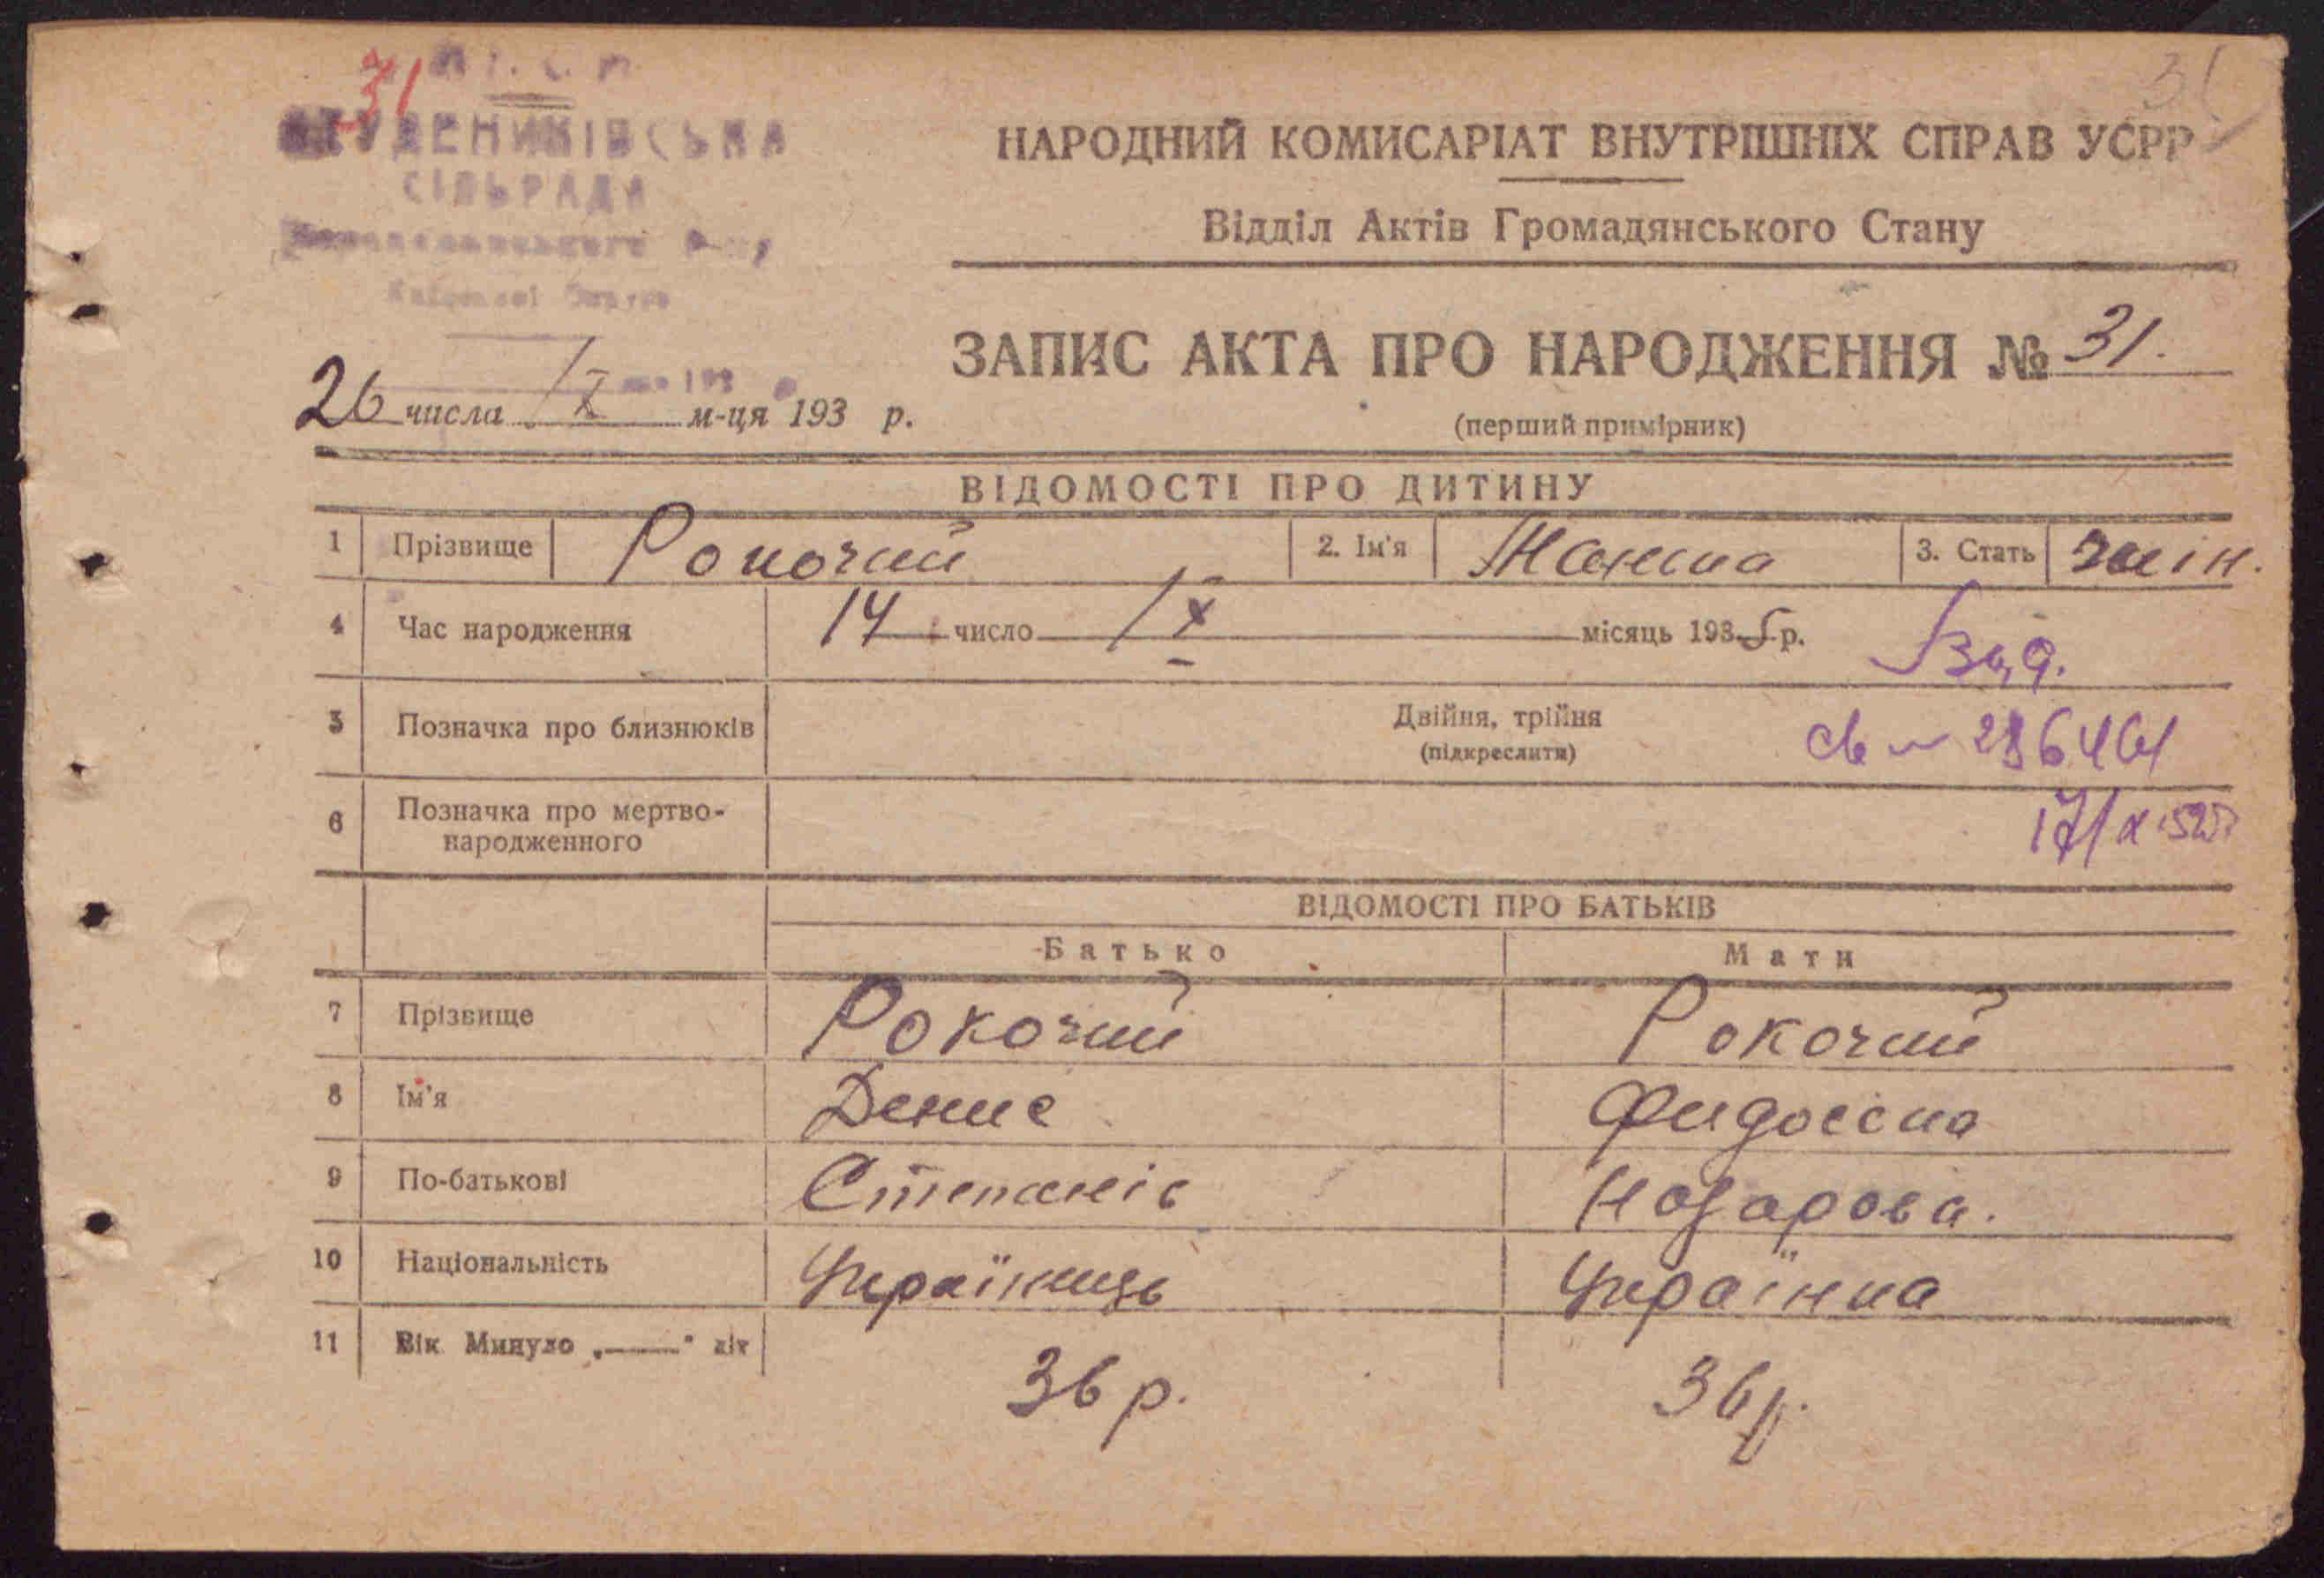 31
31
СТУДЕНИКІВСЬКА
СІЛЬРАДА
НАРОДНИЙ КОМИСАРІАТ ВНУТРІШНІХ СПРАВ УСРР
Відділ Актів Громадянського Стану
ЗАПИС АКТА ПРО НАРОДЖЕННЯ № 31.
26 числа IX м-ця 193 р.
(перший примірник)
ВІДОМОСТІ ПРО ДИТИНУ
1 Прізвище Рокочий 2. Ім'я 3. Стать жін.
4 Час народження 14 число IX місяць 1935 р.
5 Позначка про близнюків Двійня, трійня
(підкреслити)
286464
6 Позначка про мертво-
народженного
17/X 52г
ВІДОМОСТІ ПРО БАТЬКІВ
Батько Мати
7 Прізвище Рокочий Рокочий
8 Ім'я Денис Фидосска
9 По-батькові Степанів Назарова.
10 Національність Українець Українка
11 Вік Минуло „—" літ 36 р. 36 р.